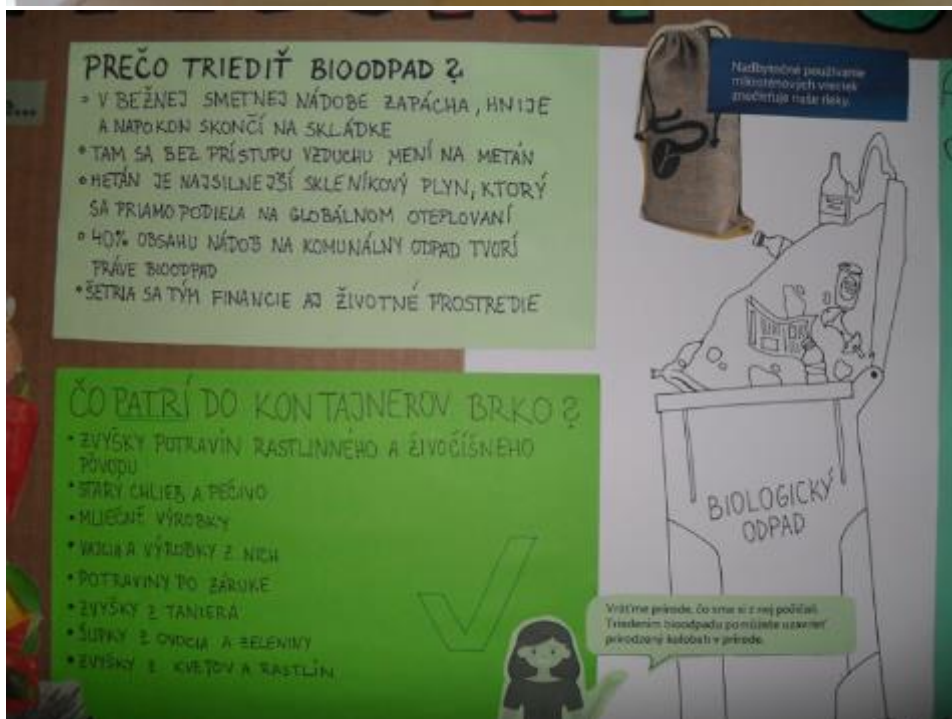 PREČO TRIEDIŤ BIOODPAD?
• V BEŽNEJ SMETNEJ NÁDOBE ZAPÁCHA, HNIJE
A NAPOKON SKONČÍ NA SKLÁDKE
• TAM SA BEZ PRÍSTUPU VZDUCHU MENÍ NA METÁN
• METÁN JE NAJSILNEJŠÍ SKLENÍKOVÝ PLYN, KTORÝ
SA PRIAMO PODIEĽA NA GLOBÁLNOM OTEPĽOVANÍ
• 40% OBSAHU NÁDOB NA KOMUNÁLNY ODPAD TVORÍ
PRÁVE BIOODPAD
• ŠETRIA SA TÝM FINANCIE AJ ŽIVOTNÉ PROSTREDIE
Nadbytočné používanie
mikroténových vreciek
znečisťuje naše rieky.
ČO PATRÍ DO KONTAJNEROV BRKO?
• ZVYŠKY POTRAVÍN RASTLINNÉHO A ŽIVOČÍŠNEHO
PÔVODU
• STARÝ CHLIEB A PEČIVO
• MLIEČNE VÝROBKY
• VAJCIA A VÝROBKY Z NICH
• POTRAVINY PO ZÁRUKE
• ZVYŠKY Z TANIERA
• ŠUPKY Z OVOCIA A ZELENINY
• ZVYŠKY Z KVETOV A RASTLÍN
BIOLOGICKÝ
ODPAD
Vráťme prírode, čo sme si z nej požičali.
Triedením bioodpadu pomôžete uzavrieť
prirodzený kolobeh v prírode.